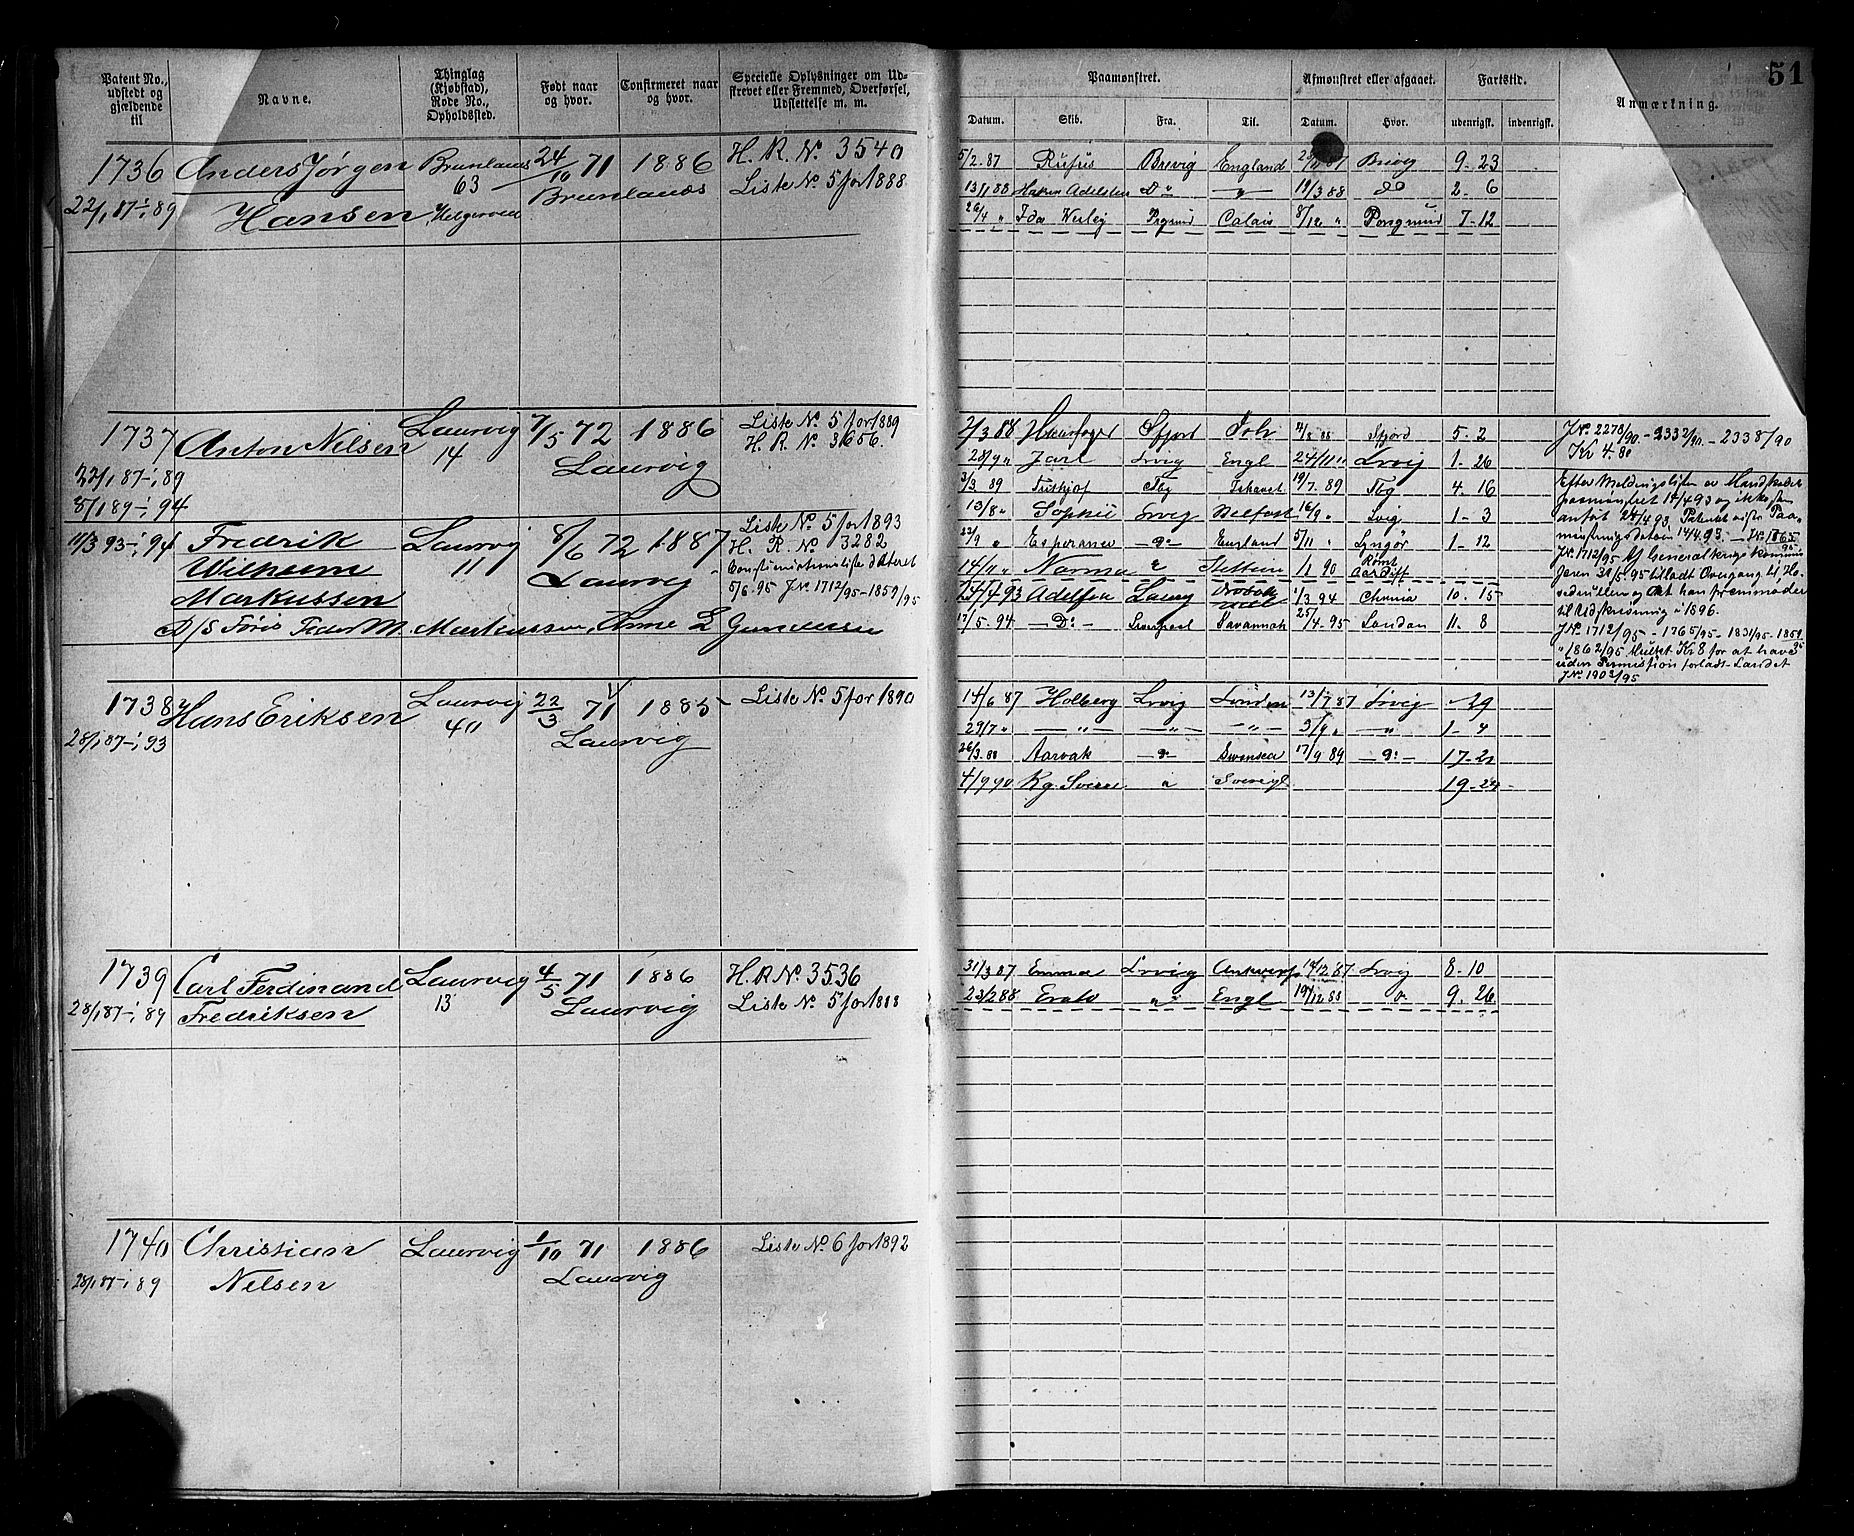 51
Patent No., udstedt og gjældende til
Navne.
Thinglag (Kjøbstad), Rode No., Opholdssted.
Født naar og hvor.
Confirmeret naar og hvor.
Specielle Oplysninger om Udskrevet eller Fremmed, Overførsel, Udslettelse m. m.
Paamønstret.
Afmønstret eller afgaaet.
Fartstid.
Anmærkning.
Datum. Skib. Fra. Til. Datum. Hvor. udenrigsk. indenrigsk.
1736 Anders Jørgen Brunlanæs 24/10 71 1886 H. R. No. 3540
22/1 87-1/1 89 Hansen 63 Helgeroed Brunlanæs Liste No. 5 for 1888
5/2. 87 Rufus Brevig England Brevig 9-23
13/1 88 Hakon Adelsten Do " 19/3 88 do 2-6
26/4 " Ida Calais 8/12 " Porsgrund 7-12
1737 Anton Nilsen Laurvig 7/5 72 1886 Liste No. 5 for 1889
22/1 87-1/1 89 14 Laurvig H. R. No. 3656.
8/1 89-1/1 94
2/3 88 Sfjord 5-2
28/9 " Jarl Lrvig Engl 24/11 " Lrvig 1-26
3/3 89 Fritkjof Tbg Ishavet 19/7. 89 Tbg 4-16
13/8 " Sophie Lrvig Belfast 16/9 " 1-3
JNo. 2278/90 - 2332/90 - 2338/90
Kr 4.80
11/3 93-1/1 94 Fredrik Laurvig 8/6 72 1887 Liste No. 5 for 1893
Wilhelm 11 Laurvig H. R. No. 3282
Markussen
5/6.95 JNo. 1712/95-1859/95
22/9 " Esperance -Do- England 5/11 " Lyngør 1-12
14/11 " Norma " Stettin 1/1 90 Cardiff
24/4 93 1/3 94 Chania 10-15
17/5 94 -Do- Liverpool Savannah 25/4.95 London 11-8
Efter Meldingslisten er Mandskabet
paamønstret 14/4 93 og ikke som
anført 24/4 93. Patentet viser Paa-
mønstringsdatum 14/4 93. - JNo. 1865/95
JNo. 1712/95 Af Generalkrigskommis-
særen 31/5 95 tilladt Overgang til Ho-
vedrullen og at han fremmøder
til Udskrivning i 1896.
JNo. 1712/95 - 1765/95 - 1831/95 - 1859/95
" 1862/95 Mulket Kr 8 for at have
uden Permission forladt Landet
JNo. 1902/95
1738 Hans Eriksen Laurvig 22/3 71 1885 Liste No. 5 for 1890
28/1 87-1/1 93 40 Laurvig
14/6 87 Holberg Lrvig London 13/7 87 Lrvig -29
29/7 " -"- -"- -"- 3/9 " -"- 1-4
26/3.88 Aarvak -Do- Swansea 17/9 89 -Do- 17-21
4/9 90 Kg. Sverre " Sverige 19-24
1739 Carl Ferdinand Laurvig 4/5 71 1886 H. R. No. 3536
28/1 87-1/1 89 Fredriksen 13 Laurvig Liste No. 5 for 1888
31/3 87 Emma Lrvig Antwerp 14/12 87 Lrvig 8-10
23/2 88 Erato " Engl 19/12 88 " 9-26
1740 Christian Laurvig 1/10 71 1886 Liste No. 6 for 1892
28/1 87-1/1 89 Nilsen Laurvig